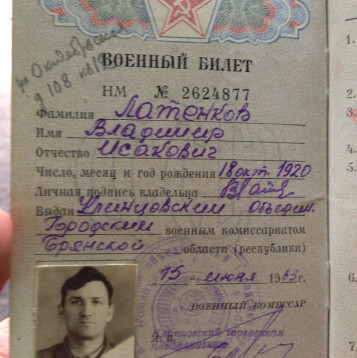 ул Октябрьская
д 108 кв
ВОЕННЫЙ БИЛЕТ
НМ № 2624877
Фамилия Латенков
Имя Владимир
Отчество Исакович
Число, месяц и год рождения 18 окт. 1920
Личная подпись владельца
Выдан Клинцовским Объедин.
Городским военным комиссариатом
Брянской области (республики)
15 июня 1963 г.
ВОЕННЫЙ КОМИССАР
1.
2.
3.
4.
5.
6.
7.